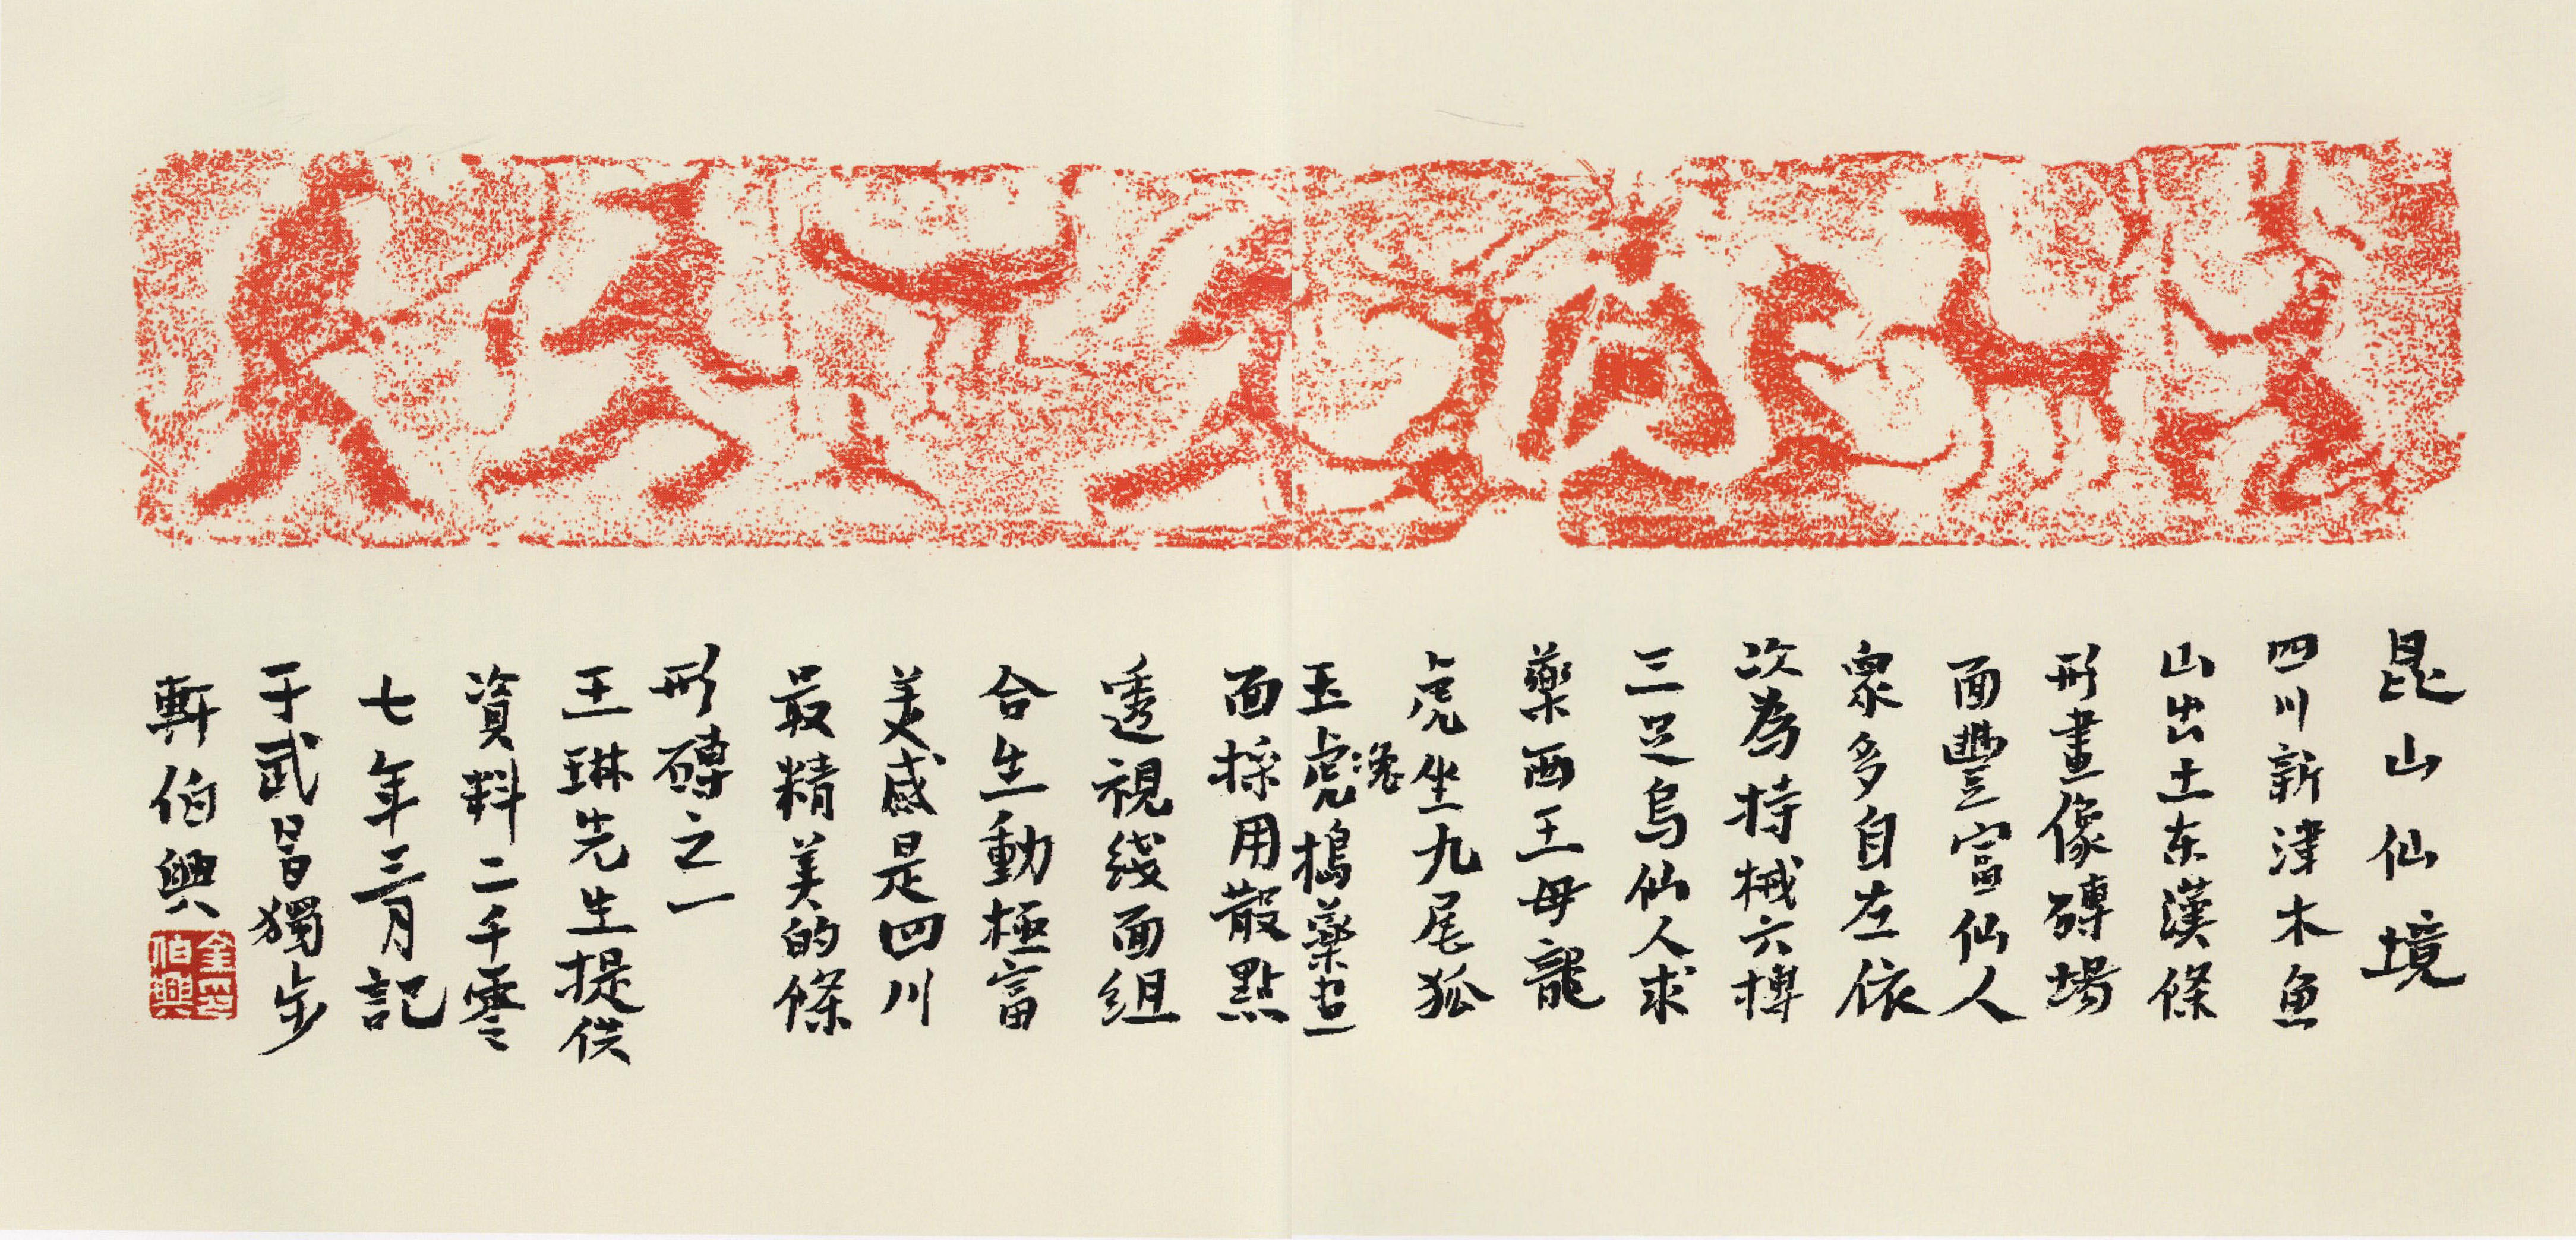 昆山仙境
四川新津木魚
山出土东漢條
形畫像磚場
面豐富仙人
衆多自左依
次為持械六博
三足烏仙人求
藥西王母龍
虎坐九尾狐
兔
玉虎搗藥画
面採用散點
透視綫面組
合生動極富
美感是四川
最精美的條
形磚之一
王琳先生提供
資料二千零
七年三月記
于武昌獨步
軒伯興
伯興